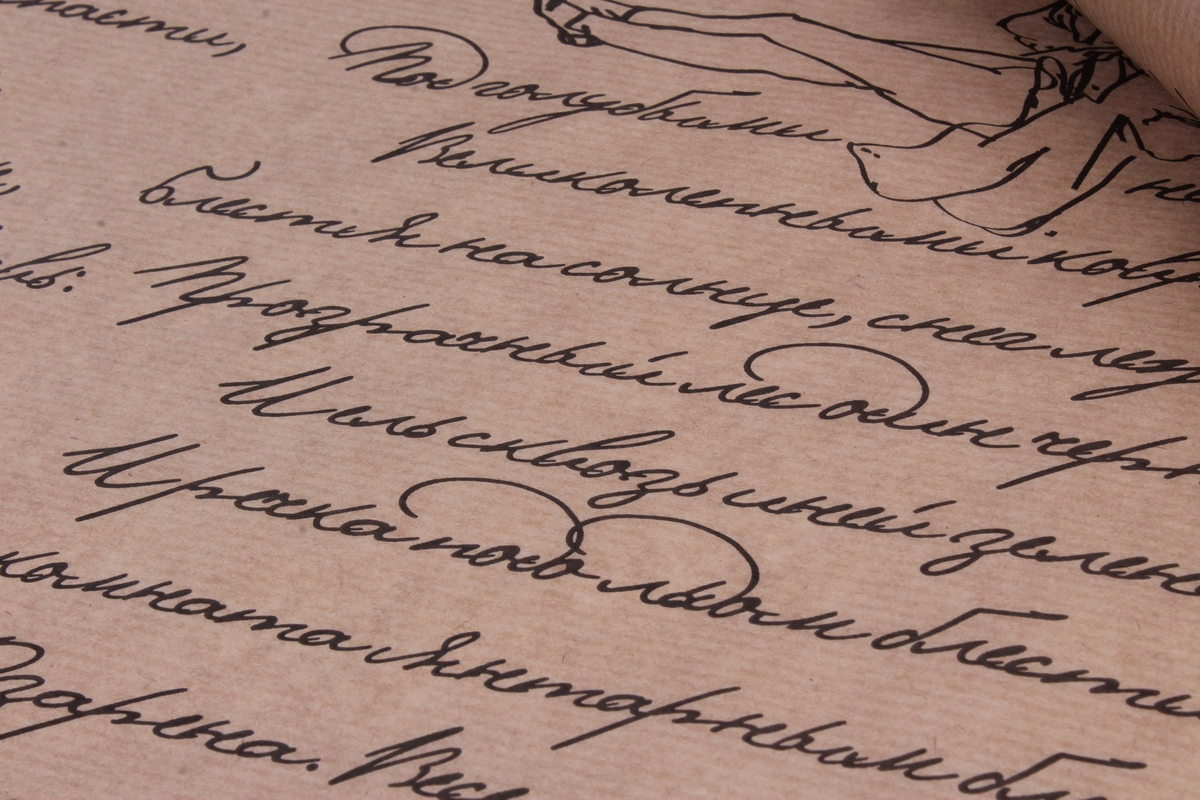 Под голубыми не
Великолепными ков
Блестя на солнце, снег леж
Прозрачный лес один черн
И ель сквозь иней зелене
И речка подо льдом блести
комната янтарным бл
Озарена. Весе